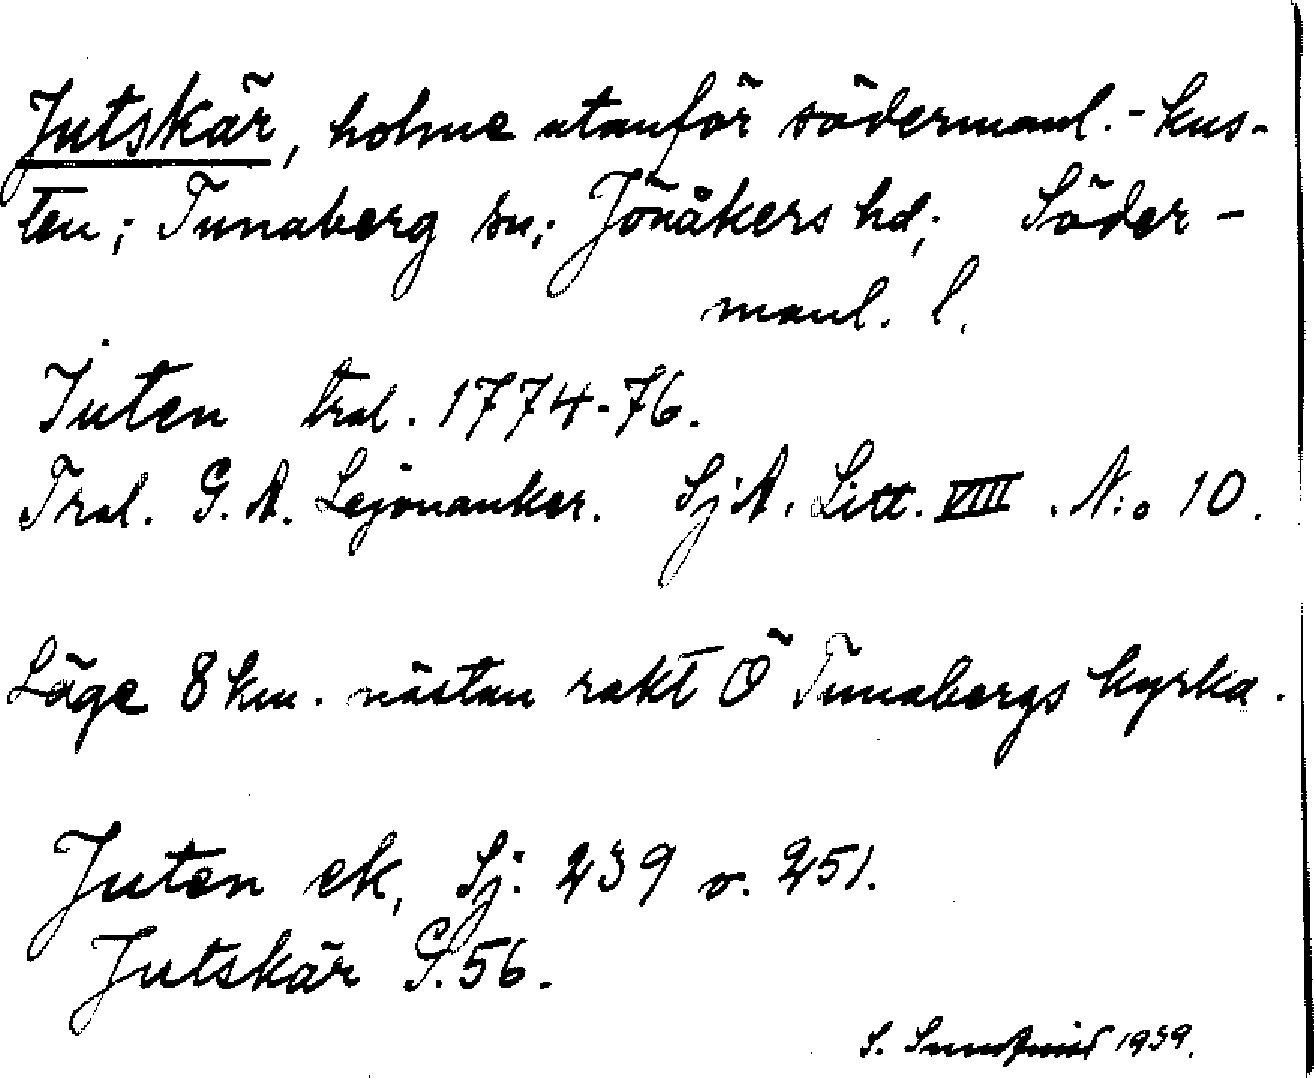 Jutskär, holme utanför södermanl.-kus-
ten; Tunaberg sn; Jönåkers hd; Söder-
manl. l.
Juten tral. 1774-76.
Tral. G. A. Lejonanker. SjA. Litt. VIII. N:o 10.
Läge 8 km. nästan rakt Ö Tunabergs kyrka.
Juten ek, Sj. 239 o. 251.
Jutskär G. 56.
S. Sundqvist 1939.